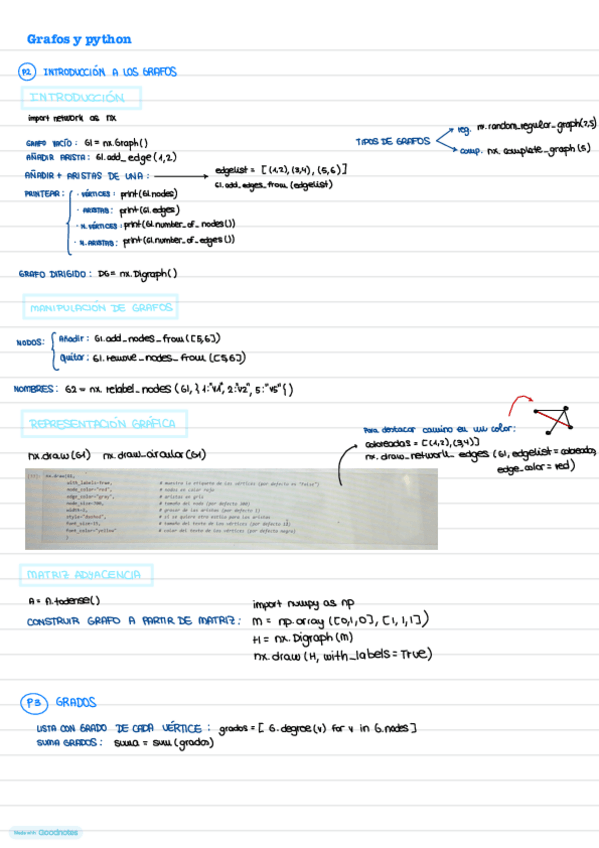 Grafos y python
P2 INTRODUCCIÓN A LOS GRAFOS
INTRODUCCIÓN
import network as nx
GRAFO VACÍO: G1 = nx.Graph()
AÑADIR ARISTA: G1.add_edge(1,2)
AÑADIR + ARISTAS DE UNA: → edgelist = [(1,2),(3,4),(5,6)]
G1.add_edges_from(edgelist)
TIPOS DE GRAFOS
reg. nx.random_regular_graph(2,5)
comp. nx.complete_graph(5)
PRINTEAR: { · VÉRTICES: print(G1.nodes)
· ARISTAS: print(G1.edges)
· N.VÉRTICES: print(G1.number_of_nodes())
· N.ARISTAS: print(G1.number_of_edges())
GRAFO DIRIGIDO: DG = nx.Digraph()
MANIPULACIÓN DE GRAFOS
NODOS: { Añadir: G1.add_nodes_from([5,6])
Quitar: G1.remove_nodes_from([5,6])
NOMBRES: G2 = nx.relabel_nodes(G1, {1:"v1", 2:"v2", 5:"v5"{)
REPRESENTACIÓN GRÁFICA
nx.draw(G1) nx.draw_circular(G1)
Para destacar camino en un color:
coloreadas = [(1,2),(3,4)]
nx.draw_network_edges(G1, edgelist = coloreadas,
edge_color = red)
nx.draw(G1,
with_labels=True, # muestra la etiqueta de los vértices (por defecto es "False")
node_color="red", # nodos en color rojo
edge_color="gray", # aristas en gris
node_size=700, # tamaño del nodo (por defecto 300)
width=3, # grosor de las aristas (por defecto 1)
style="dashed", # si se quiere otro estilo para las aristas
font_size=15, # tamaño del texto de los vértices (por defecto 12)
font_color="yellow" # color del texto de los vértices (por defecto negro)
)
MATRIZ ADYACENCIA
A = A.todense()
import numpy as np
CONSTRUIR GRAFO A PARTIR DE MATRIZ: M = np.array([0,1,0], [1,1,1])
H = nx.Digraph(M)
nx.draw(H, with_labels = True)
P3 GRADOS
LISTA CON GRADO DE CADA VÉRTICE: grados = [ G.degree(v) for v in G.nodes]
SUMA GRADOS: suma = sum(grados)
Made with Goodnotes